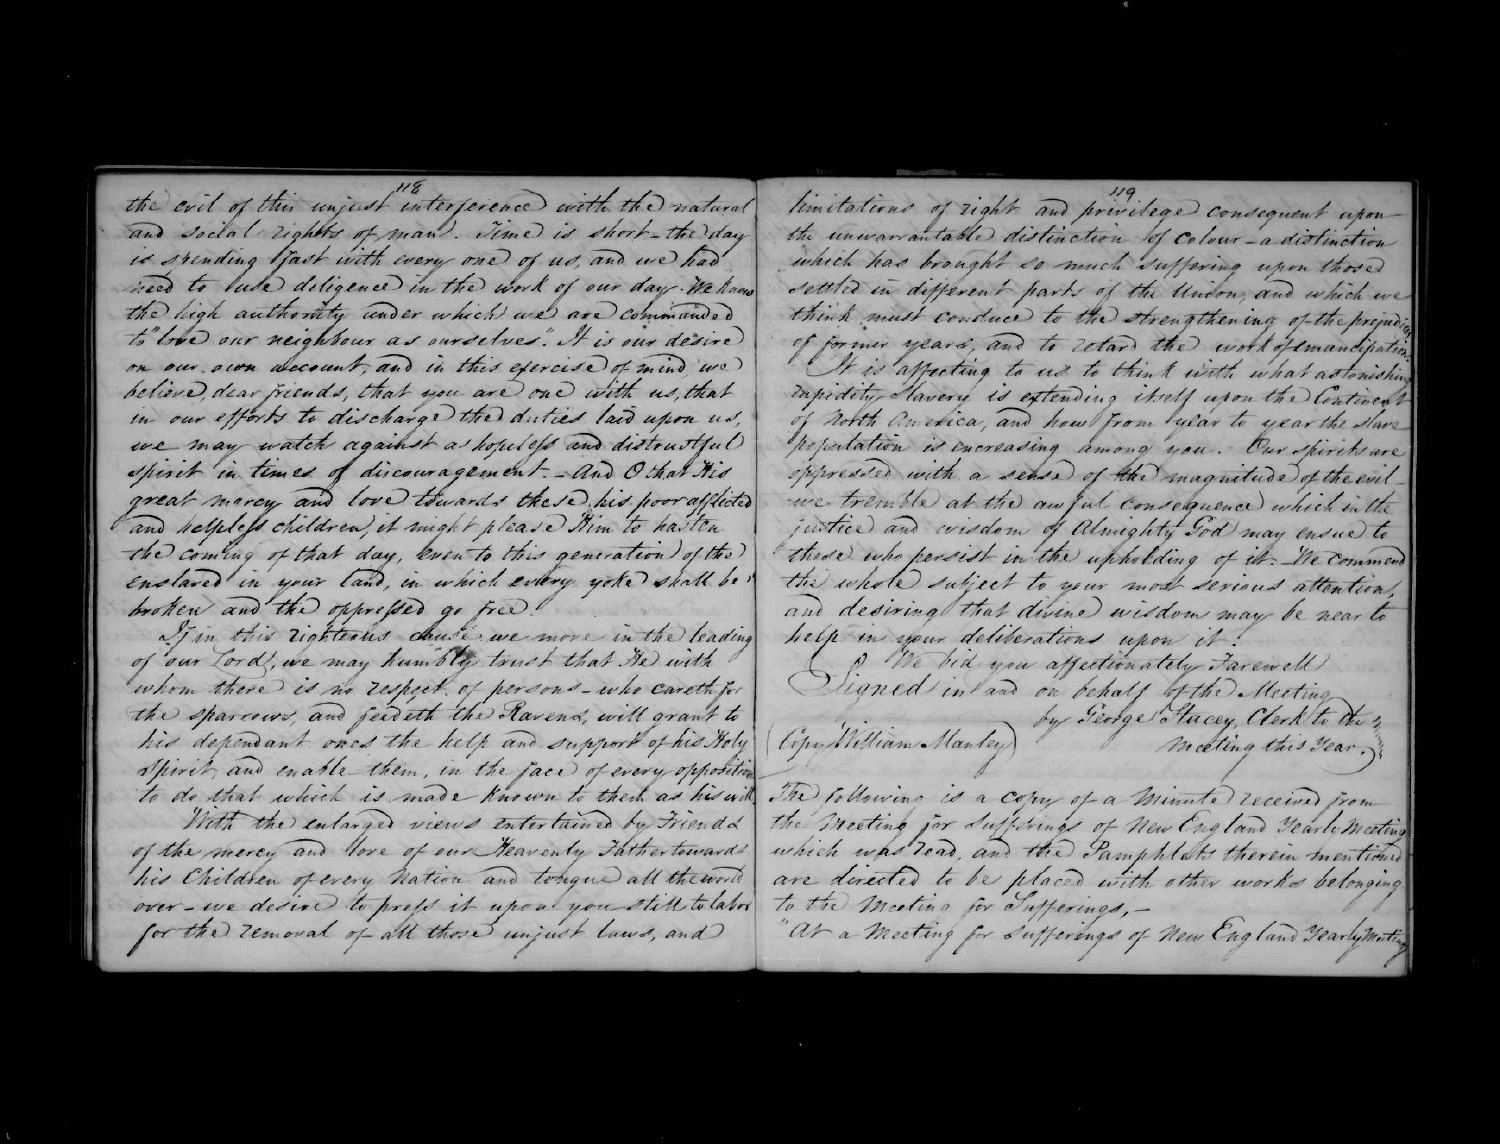 118
the evil of this unjust interference with the natural
and social rights of man. Time is short – the day
is spending fast with every one of us, and we had
need to use deligence in the work of our day. We know
the high authority under which we are commanded
to "love our neighbour as ourselves". It is our desire
on our own account, and in this exercise of mind we
believe, dear friends, that you are one with us, that
in our efforts to discharge the duties laid upon us,
we may watch against a hopeless and distrustful
spirit in times of discouragement. – And O that His
great mercy and love towards these, his poor afflicted
and helpless children, it might please Him to hasten
the coming of that day, even to this generation of the
enslaved in your land, in which every yoke shall be
broken and the oppressed go free.
If in this righteous cause we move in the leading
of our Lord, we may humbly trust that He with
whom there is no respect of persons – who careth for
the sparrows, and feedeth the Ravens, will grant to
his dependant ones the help and support of his Holy
Spirit, and enable them, in the face of every opposition
to do that which is made known to them as his will.
With the enlarged views entertained by Friends
of the mercy and love of our Heavenly Father towards
his Children of every Nation and tongue all the world
over – we desire to press it upon you still to labor
for the removal of all those unjust laws, and
119
limitations of right and privilege consequent upon
the unwarrantable distinction of colour – a distinction
which has brought so much suffering upon those
settled in different parts of the Union, and which we
think must conduce to the strengthening of the prejudices
of former years, and to retard the work of emancipation.
It is affecting to us to think with what astonishing
rapidity Slavery is extending itself upon the Continent
of North America, and how from year to year the slave
population is increasing among you. Our spirits are
oppressed with a sense of the magnitude of the evil –
we tremble at the awful consequence which in the
justice and wisdom of Almighty God may ensue to
those who persist in the upholding of it. – We commend
the whole subject to your most serious attention,
and desiring that divine wisdom may be near to
help in your deliberations upon it.
We bid you affectionately Farewell
Signed in and on behalf of the Meeting
by George Stacey, Clerk to the
(Copy William Manley) Meeting this Year.
The following is a copy of a Minute received from
the Meeting for Sufferings of New England Yearly Meeting
which was read, and the Pamphlets therein mentioned
are directed to be placed with other works belonging
to the Meeting for Sufferings, –
"At a Meeting for Sufferings of New England Yearly Meeting